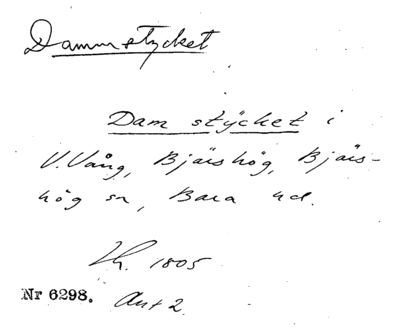 Dammstycket
Dam stÿcket i
V. Vång, Bjärshög, Bjärs-
hög sn, Bara hd.
Lh. 1805
Nr 6298. Ant 2.